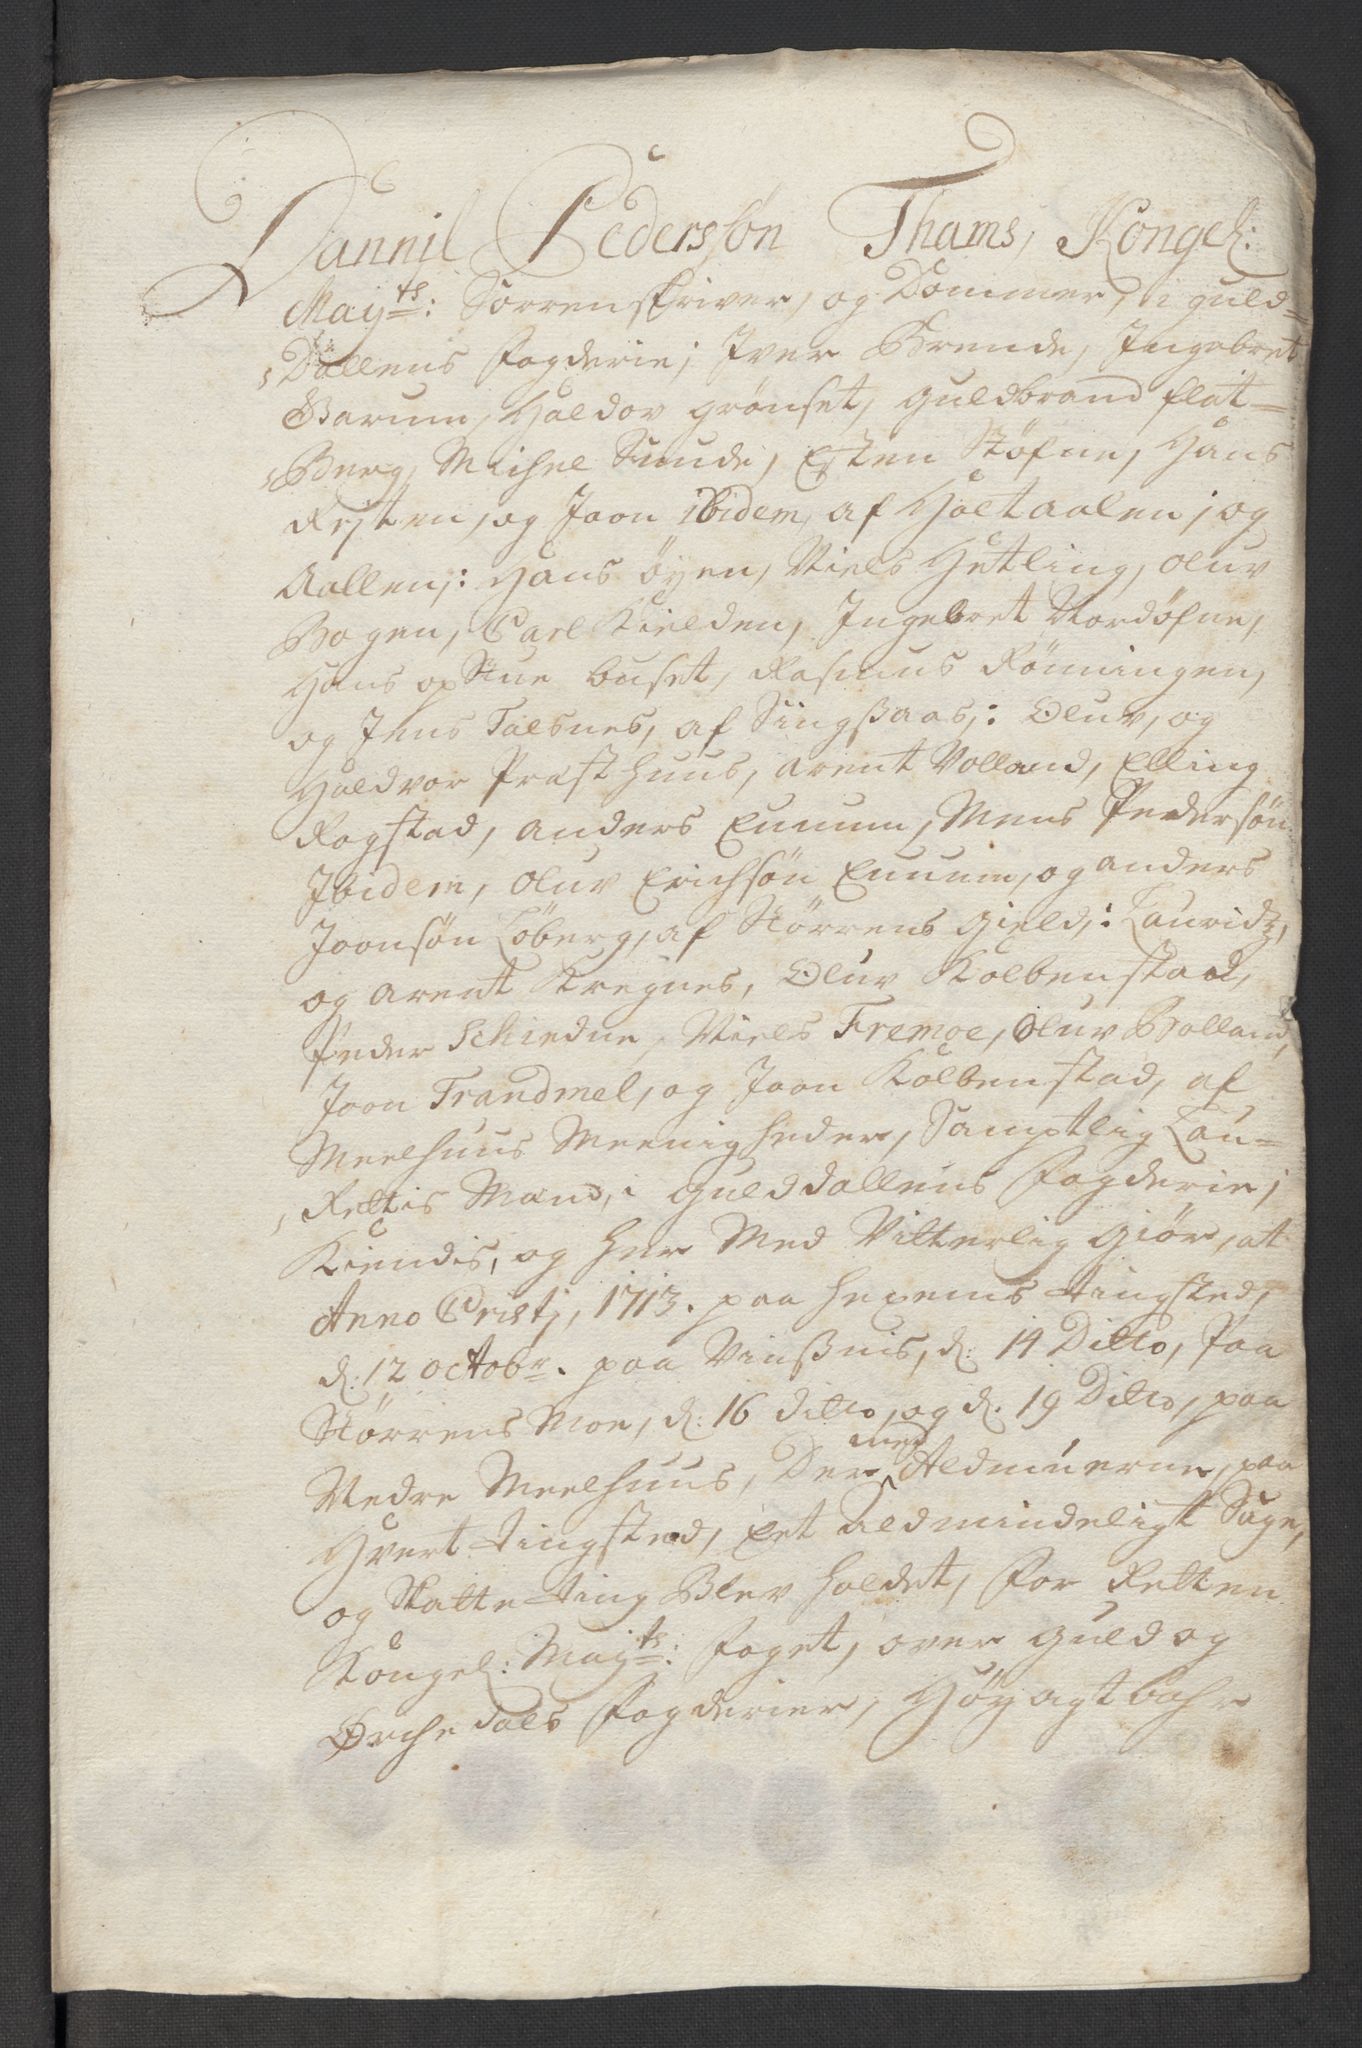 Dannil Pedersøn Thams, Kongel:
Mayts: Sorrenskriver, og Dommer, i guld-
Dallens fogderie; Iver Brende, Ingebret
Barum, Haldor grønset, guldbrand flat-
Berg, Michel Sunde, Esten Støfne, Hans
Resten, og Joon ibidem, af Holtaalen; og
Aallen;: Hans øyen, Niels Hetling, oluv
Bogen, Carl Kielden, Ingebret Nordøfne,
Hans opStue buset, Rasmus Rømingen,
og Jens Talsnes, af Singsaas;: Oluv, og
Haldvor Præsthuus, arent Volland, Elling
Rogstad, anders Enmum, Mens Pedersøn
Ibidem, oluv Erichsøn Enmum, og anders
Joonsøn Løberg, af Størrens gield;: Lauridz,
og arent Kregnes, Oluv Kolbenstad,
Peder Schiedne, Niels Fremoe, Oluv Bolland,
Joon Trandmel, og Joon Kolbenstad, af
Meelhuus Meenigheder, Samptlig Lau-
Rettis Mænd, i guldDallens fogderie;
Kiendis, og her Med Vitterlig giør, at
Anno Cristj, 1713. paa hexems tingsted,
d: 12 octobr. paa Vinsnis, d: 14 Ditto, paa
Størrens Moe, d: 16 ditto, og d. 19 Ditto, paa
Nedre Meelhuus, Der med Aldmuerne, paa
Hvert tingsted, Eet Aldmindeligt Sage,
og Skatte ting Blev holdet, for Retten
Kongel: Mayts: foget, over guld og
Ørchedals fogderier, Høyagtbahr